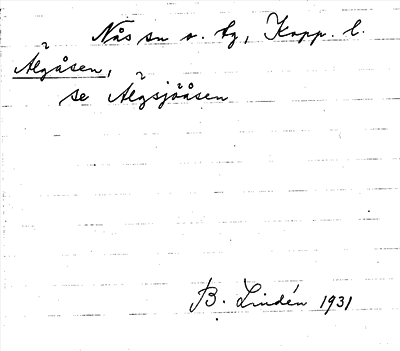 Nås sn o. by, Kopp. l.
Älgåsen,
se Älgsjöåsen
B. Lindén 1931